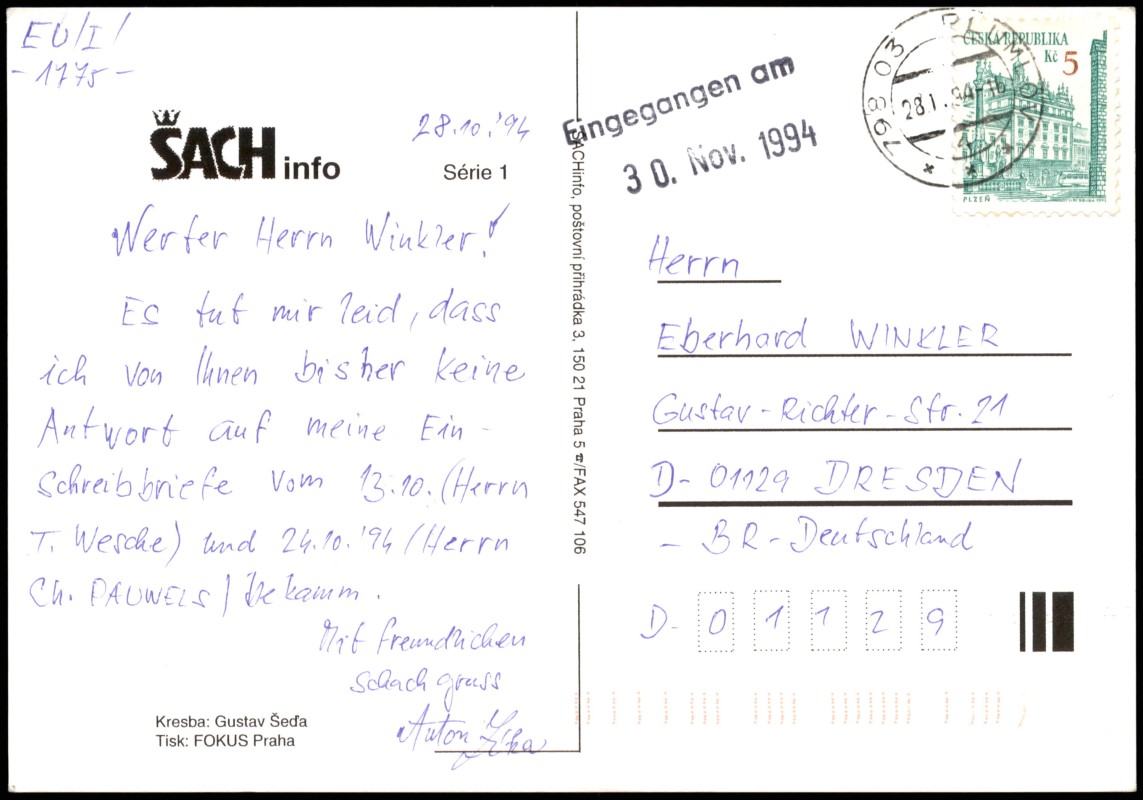 EU/I/
- 1775 -
ŠACH info
28.10.'94
Série 1
Werter Herrn Winkler!
Es tut mir leid, dass
ich von Ihnen bisher keine
Antwort auf meine Ein-
schreibbriefe vom 13.10. (Herrn
T. Wesche) und 24.10.'94 (Herrn
Ch. PAUWELS) bekamm.
Mit freundlichen
Schachgruss
Anton
Kresba: Gustav Šeďa
Tisk: FOKUS Praha
ŠACHinfo, poštovní přihrádka 3, 150 21 Praha 5 ☎/FAX 547 106
Eingegangen am
30. Nov. 1994
798 03 PLUMLOV
ČESKÁ REPUBLIKA
Kč 5
PLZEŇ
Herrn
Eberhard WINKLER
Gustav-Richter-Str. 21
D- 01129 DRESDEN
- BR-Deutschland
D- 0 1 1 2 9